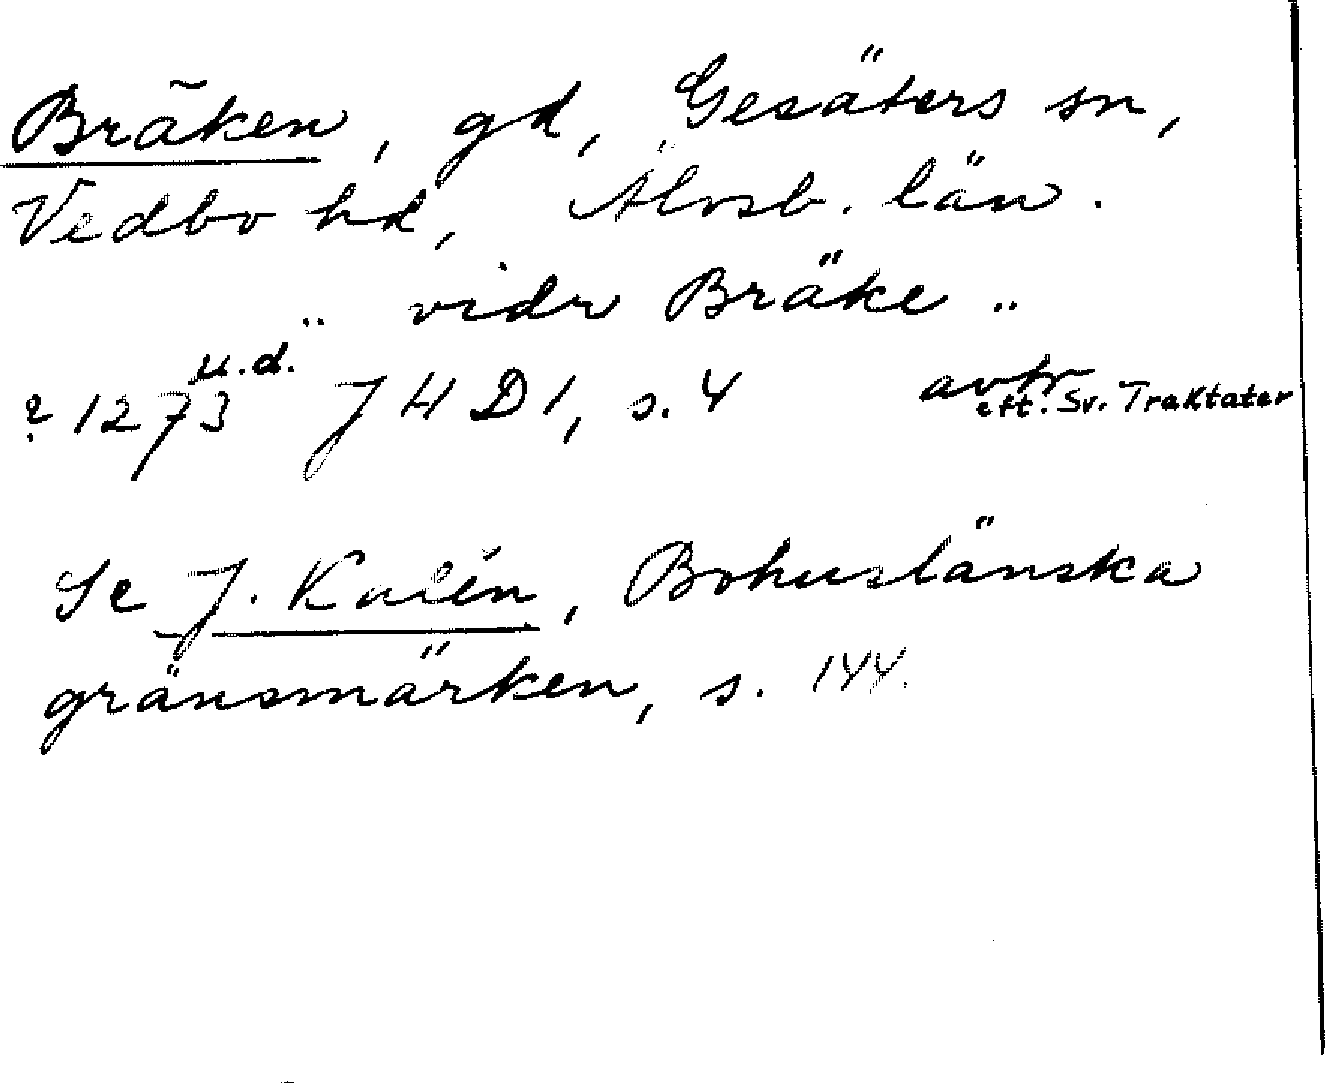 Bräken, gd, Gesäters sn,
Vedbo hd, Älvsb. län.
„ vidr Bräke „
? 1273 u.d. JHD 1, s. 4 avtr eft. Sv. Traktater
Se J. Kalén, Bohuslänska
gränsmärken, s. 144.